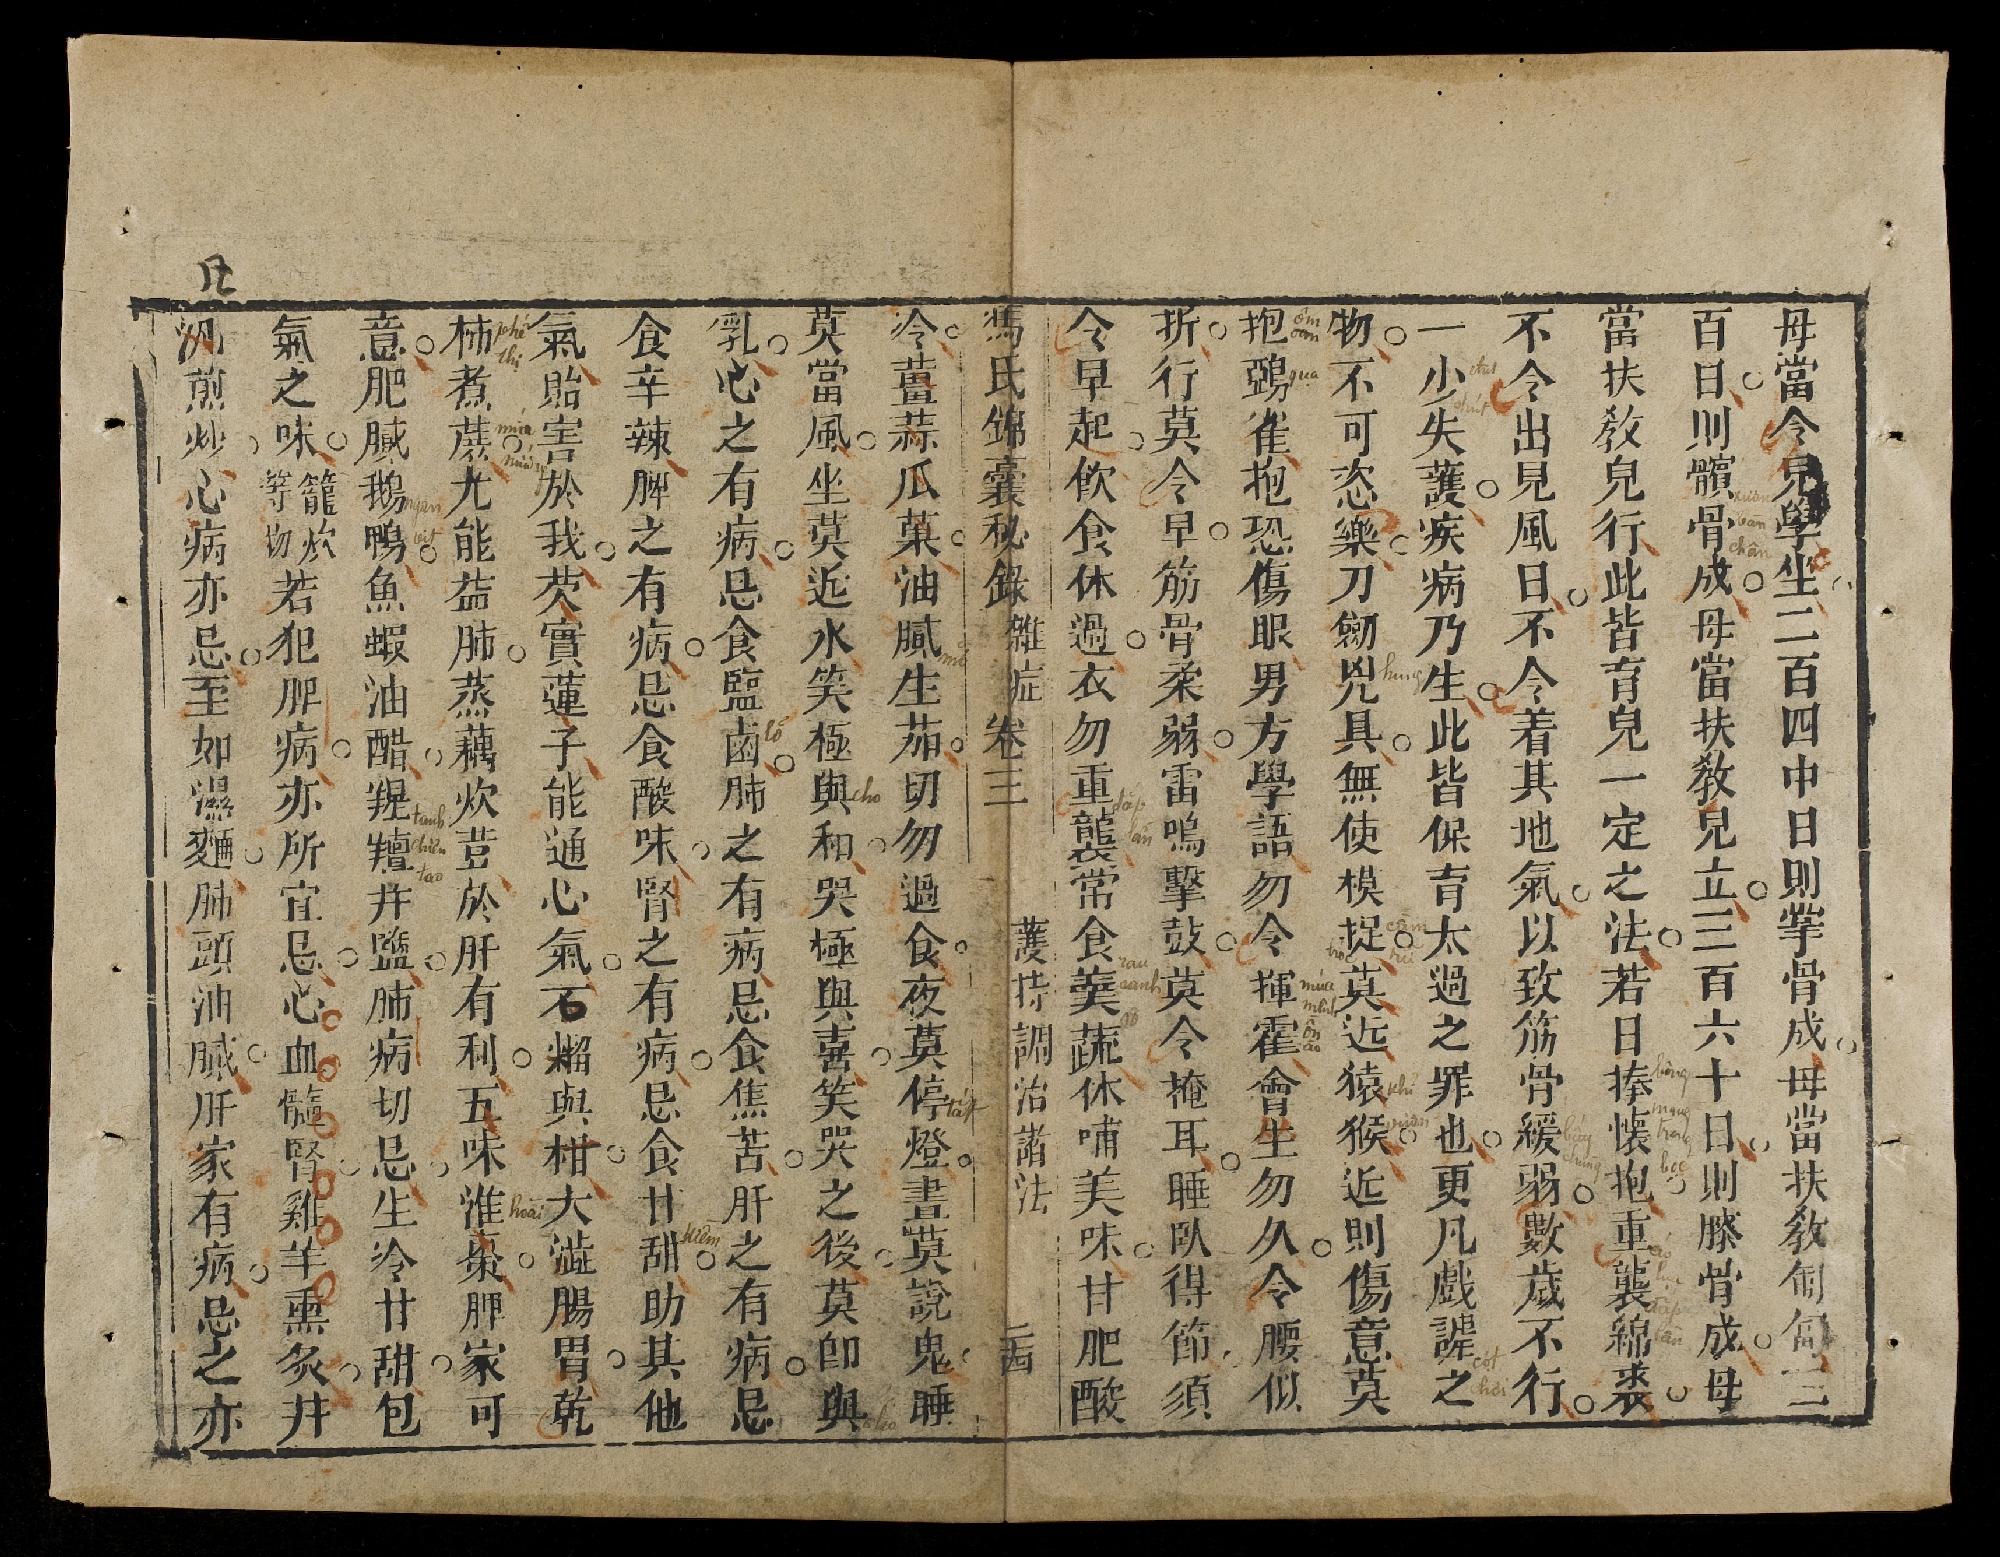 母當令兒學坐二百四中日則掌骨成母當扶教匍匐三
百日則髕骨成母當扶教兒立三百六十日則膝骨成母
當扶教兒行此皆育兒一定之法若日捧懷抱重襲綿裘
不令出見風日不令着其地氣以致筋骨緩弱數歲不行
一少失護疾病乃生此皆保育太過之罪也更凡戲謔之
物不可恣樂刀劒兇具無使模捉莫近猿猴近則傷意莫
抱鵶雀抱恐傷眼男方學語勿令揮霍會坐勿久令腰似
折行莫令早筋骨柔弱雷鳴擊鼓莫令掩耳睡臥得節須
令早起飲食休過衣勿重襲常食葷蔬休哺美味甘肥酸
馮氏錦囊秘錄 雜症 卷三 護持調治諸法 二四
冷薑蒜瓜菓油膩生茄切勿過食夜莫停燈晝莫說鬼睡
莫當風坐莫近水笑極與和哭極與喜笑哭之後莫卽與
乳心之有病忌食鹽鹵肺之有病忌食焦苦肝之有病忌
食辛辣脾之有病忌食酸味腎之有病忌食甘甜助其他
氣貽害於我芡實蓮子能通心氣石榴與柑大澁腸胃乾
柿煮蔗尤能益肺蒸藕炊荳於肝有利五味淮棗脾家可
意肥膩鵝鴨魚蝦油醋羥羶幷鹽肺病切忌生冷甘甜包
氣之味籠炊等物若犯脾病亦所宜忌心血髓腎雞羊熏炙幷
汎煎炒心病亦忌至如濕麵肺頭油膩肝家有病忌之亦
phế thị
mía
cho
hoài
kiềm
hung
quạ
đắp